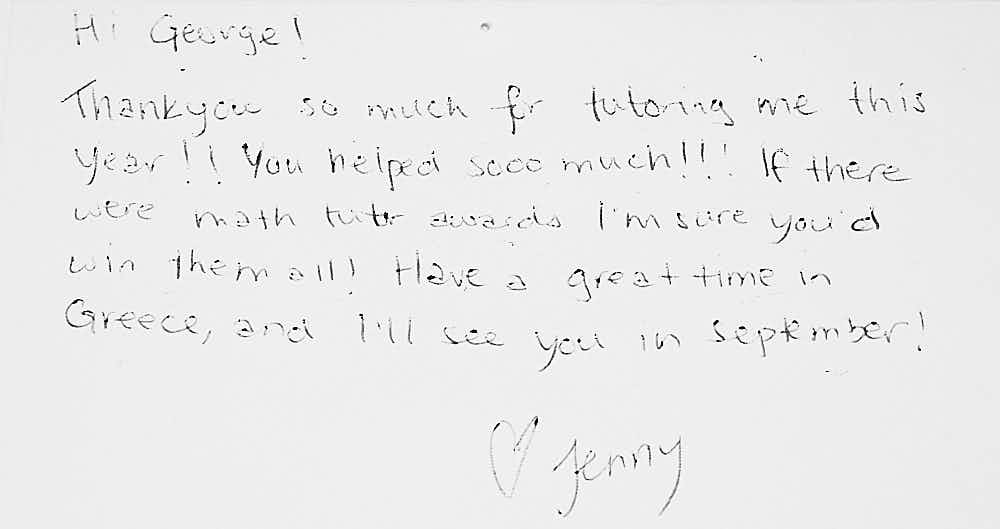 Hi George!
Thankyou so much for tutoring me this
year!! You helped sooo much!!! If there
were math tutor awards I'm sure you'd
win them all! Have a great time in
Greece, and I'll see you in September!
♡ Jenny